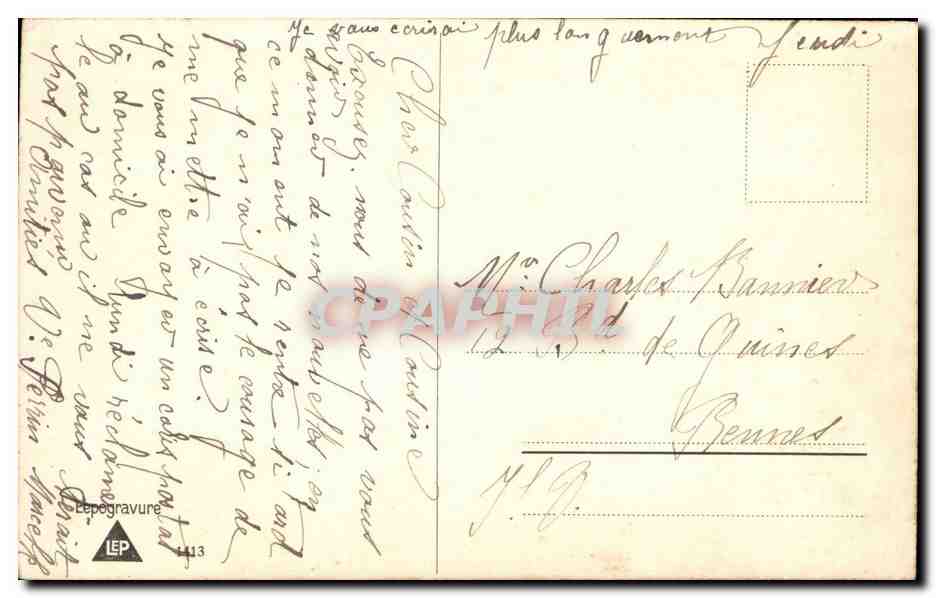 Je vous écrirai plus longuement Jeudi
Cher Cousin et Cousine
Excusez nous de ne pas vous
avoir
donner de nos nouvelles, on
ce moment je rentre si tard
que je n'ai pas le courage de
me mettre à écrire.
Je vous ai envoyer un colis postal
à domicile Lundi réclamer
le au cas ou il ne vous serait
pas parvenu
Amitiés Ve Perin Marcelle
Mr. Charles Bannier
12 Bd de Guines
Rennes
I. V.
Lepogravure
LEP
1413
CPAPHIL